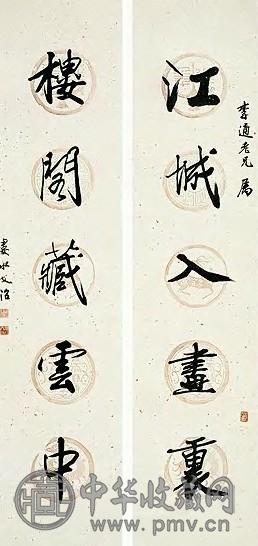 李適老兄属
江城入畫裏
樓閣藏雲中
婁水文治
中华收藏网
www.pmv.cn